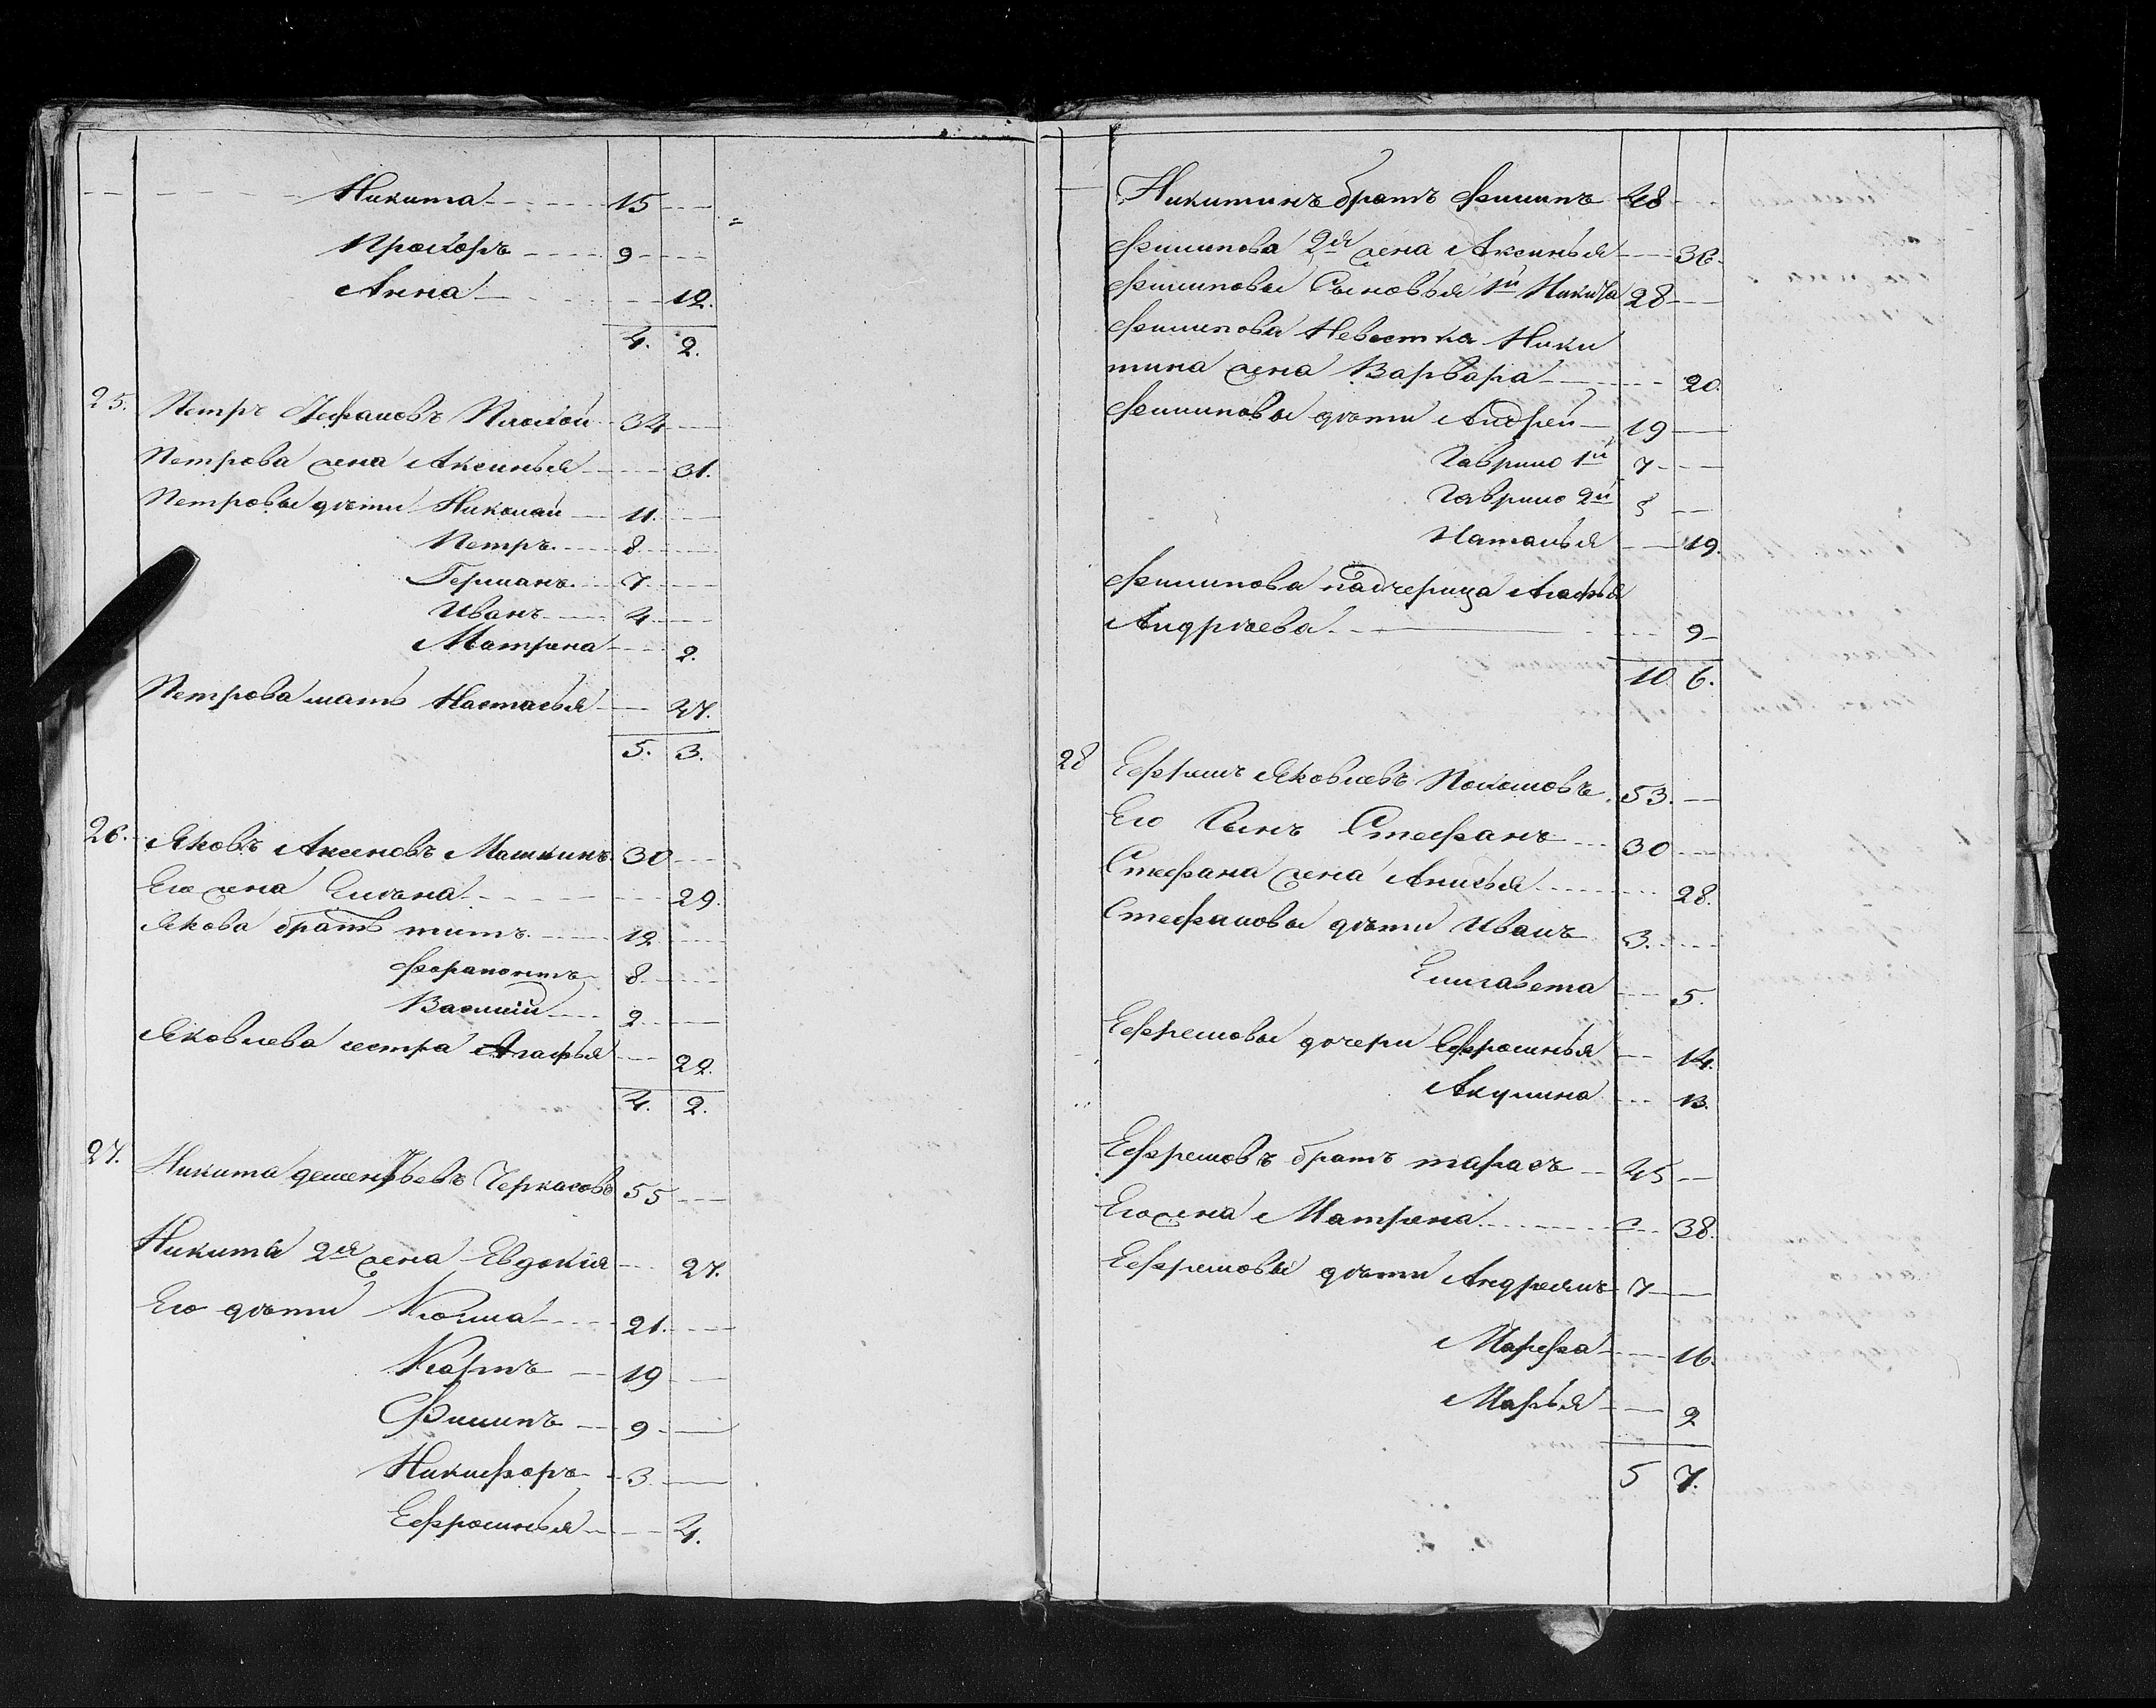 Никита 15
Прохоръ 9
Анна 12.
4. 2.
25. Петръ Плохой 34
Петрова жена Аксинья 31.
Петровы дѣти Николай 11.
Петръ 8
Германъ 7
Иванъ 4
Матрена 2.
Петрова мать Настасья 47.
5. 3.
26. Яковъ Аксеновъ Машкинъ 30
Его жена Елѣна 29.
Якова братъ титъ 12
Ферапонтъ 8
Василій 2
Яковлева сестра Агафья 22.
4. 2.
27. Никита дементьевъ Черкасовъ 55
Никиты 2я жена Евдокія 27.
Его дѣти Козма 21.
Карпъ 19
Филипъ 9
Никифоръ 3
Ефросинья 4.
Никитинъ братъ Филипъ 48
Филипова 2я жена Аксинья 36.
Филиповы Сыновья 1й Никита 28
Филипова Невестка Ники
тина жена Варвара 20.
Филиповы дѣти Андрей 19
Гаврило 1й 7
Гаврило 2й
Наталья 19.
Филипова падчерица Агафья
Андрѣева 9
10. 6.
28 Ефремъ Яковлевъ 53.
Его Сынъ Стефанъ 30
Стефана жена Анисья 28.
Стефановы дѣти Иванъ 3.
Елизавета 5.
Ефремовы дочери Ефросинья 14.
Акулина 13.
Ефремовъ братъ тарасъ 45
Его жена Матрена 38.
Ефремовы дѣти Андреянъ 7
Марфа 16.
Марья 2
5 7.